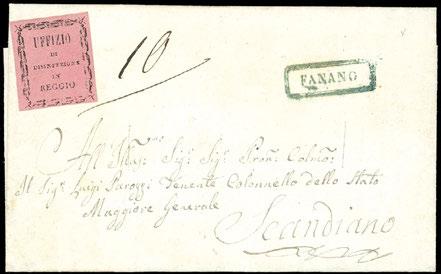 UFFIZIO
DI
DISINFEZIONE
IN
REGGIO
10
FANANO
All' Illmo: Sig: Sig: Pron: Colmo:
Il Sigr Luigi Parozzi Tenente Colonnello dello Stato
Maggiore Generale
Scandiano